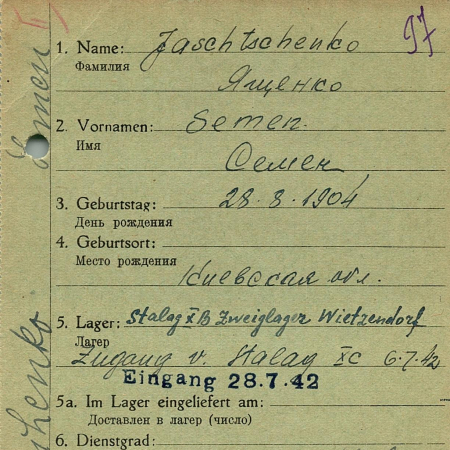 97
1. Name: Jaschtschenko
Фамилия
Ященко
2. Vornamen: Semen.
Имя
Семен
3. Geburtstag: 28.8.1904
День рождения
4. Geburtsort:
Место рождения
Киевская обл.
5. Lager: Stalag XB Zweiglager Wietzendorf
Лагер
Zugang v. Stalag XC 6.7.42
Eingang 28.7.42
5a. Im Lager eingeliefert am:
Доставлен в лагер (число)
6. Dienstgrad: